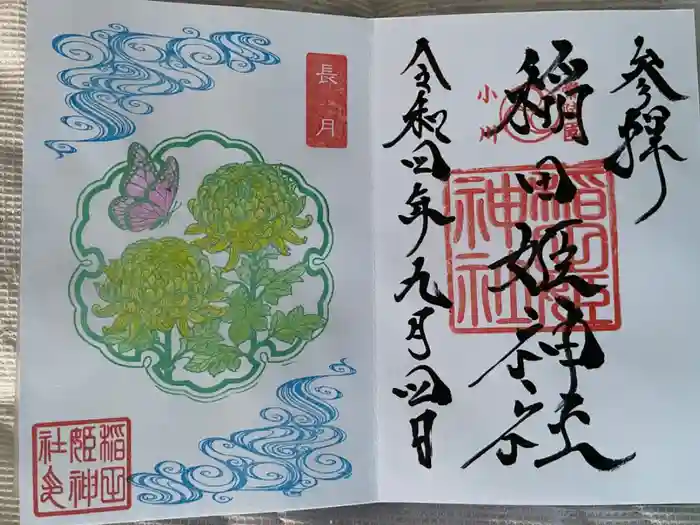 参拝
稲田姫神社
令和四年九月四日
小川
稲田姫神社
長月
稲田姫神社之印